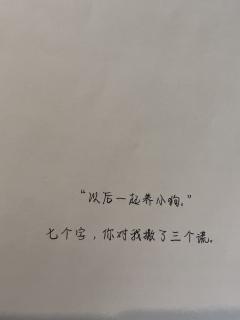 “以后一起养小狗。”
七个字，你对我撒了三个谎。